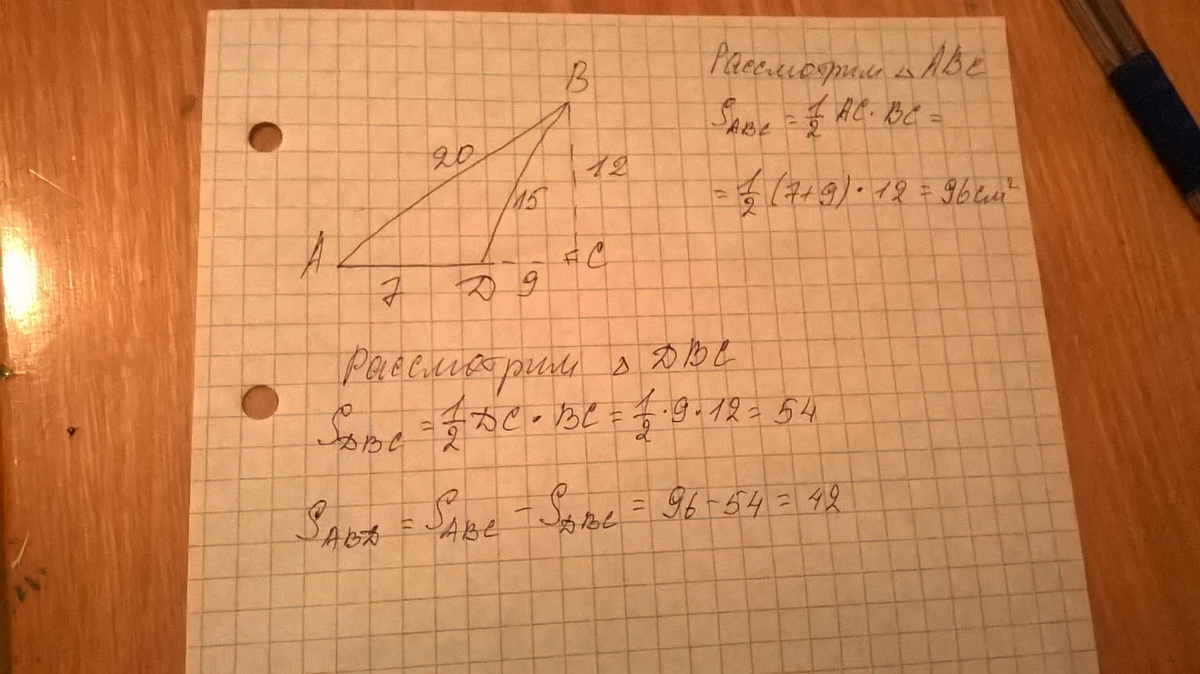 B
20
12
15
A
7
D
9
C
Рассмотрим △ ABC
S_ABC = 1/2 AC · BC =
= 1/2 (7+9) · 12 = 96 см²
Рассмотрим △ DBC
S_DBC = 1/2 DC · BC = 1/2 · 9 · 12 = 54
S_ABD = S_ABC - S_DBC = 96 - 54 = 42